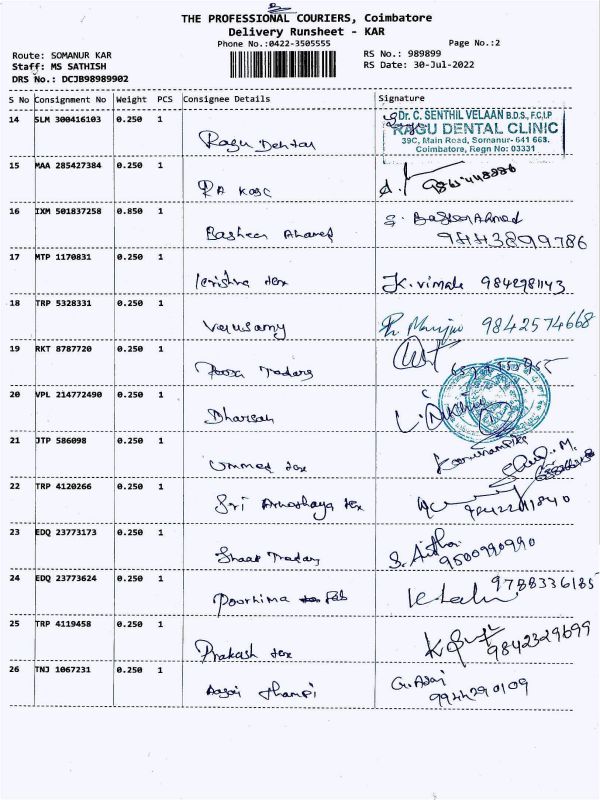 THE PROFESSIONAL COURIERS, Coimbatore
Delivery Runsheet - KAR
Phone No.:0422-3505555
Page No.:2
Route: SOMANUR KAR
RS No.: 989899
Staff: MS SATHISH
RS Date: 30-Jul-2022
DRS No.: DCJB98989902
S No Consignment No Weight PCS Consignee Details Signature
14 SLM 300416103 0.250 1 Ragu Dental
Dr. C. SENTHIL VELAAN B.D.S., F.C.I.P
RAGU DENTAL CLINIC
39C, Main Road, Somanur- 641 668.
Coimbatore, Regn No: 03331
15 MAA 285427384 0.250 1 RA
16 IXM 501837258 0.850 1 Basheer Ahamed S. Basheer Ahmed
9443899786
17 MTP 1170831 0.250 1 Krishna tex K. vimala 9842981143
18 TRP 5328331 0.250 1 Velusamy 9842574668
19 RKT 8787720 0.250 1 Traders
20 VPL 214772490 0.250 1 Dharsan
21 JTP 586098 0.250 1 Ummed tex
22 TRP 4120266 0.250 1 Sri tex
23 EDQ 23773173 0.250 1 Traders
9500990990
24 EDQ 23773624 0.250 1 Poornima Fab 9788336185
25 TRP 4119458 0.250 1 Prakash tex
9842329699
26 TNJ 1067231 0.250 1 Thampi
9944290109